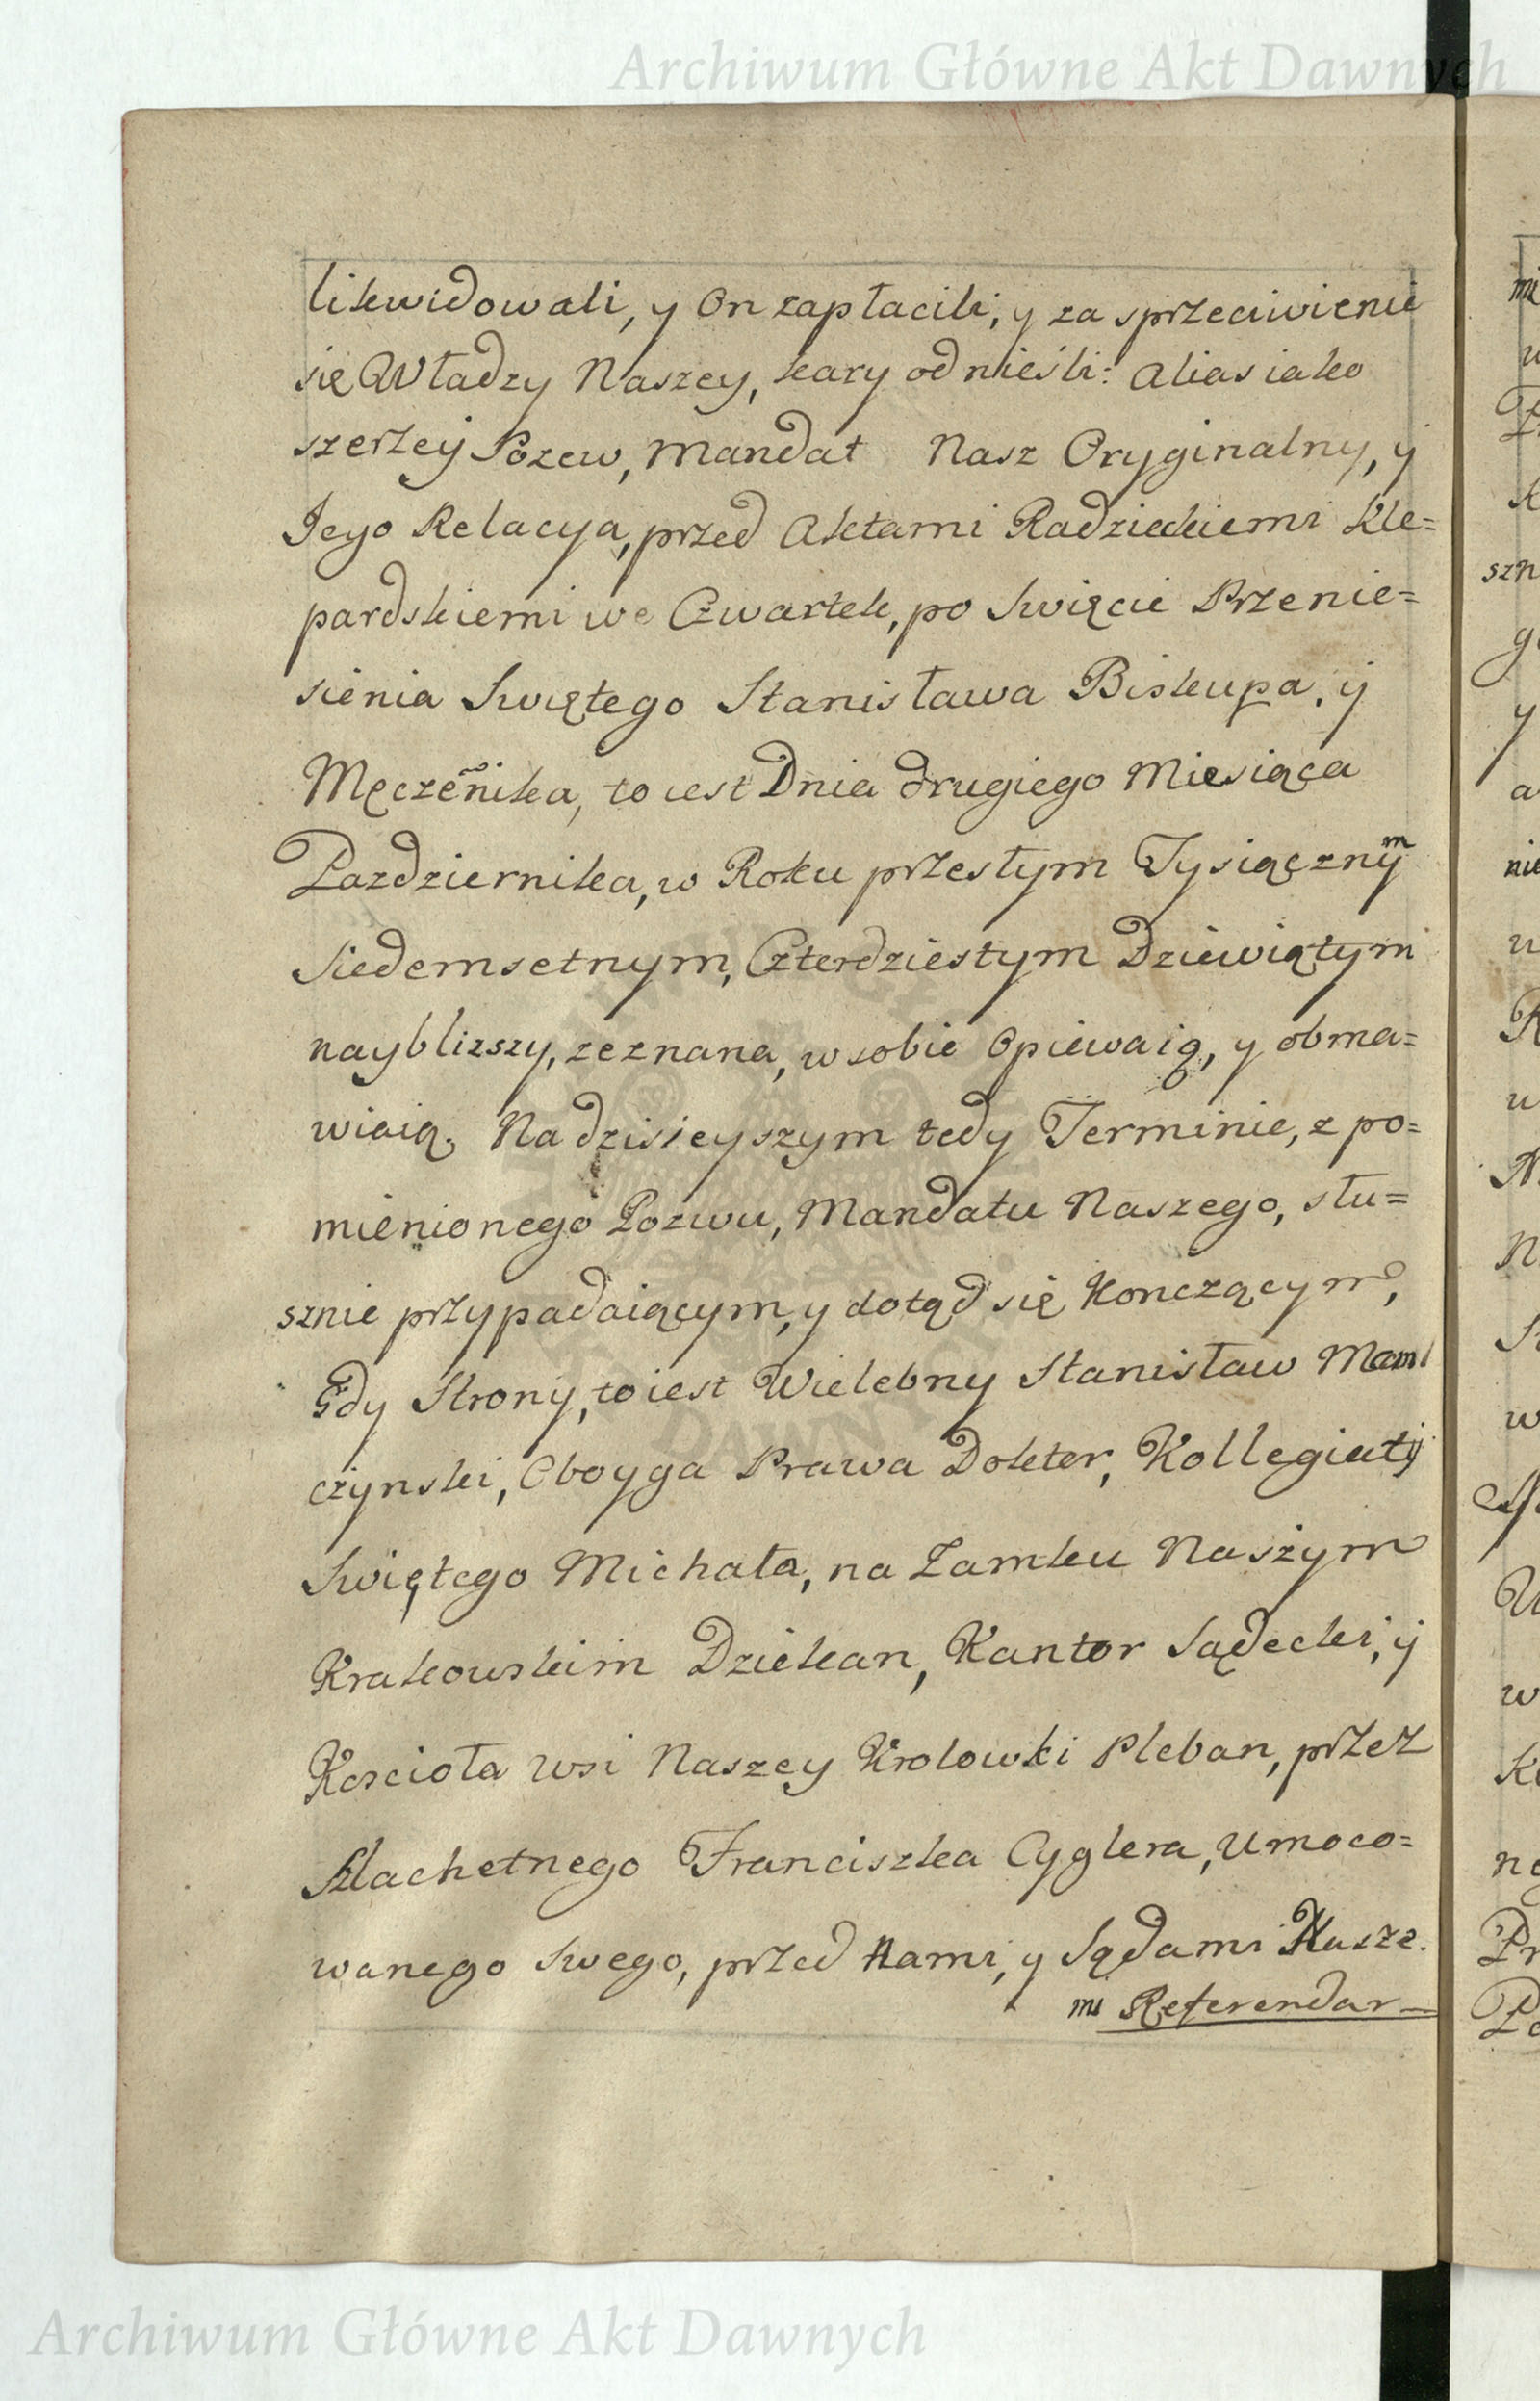 Archiwum Główne Akt Dawnych
likwidowali, y On zapłacili, y za sprzeciwienie
się Władzy Naszey, kary odnieśli: alias iako
szerzey Pozew, Mandat Nasz Oryginalny, y
Jego Relacya, przed Aktami Radzieckiemi Kle=
pardskiemi we Czwartek, po Swięcie Przenie=
sienia Swiętego Stanisława Biskupa, y
Męczeñika, to iest Dnia drugiego Miesiąca
Pazdziernika, w Roku przesłym Tysiącznym
Siedemsetnym, Czterdziestym Dziewiątym
nayblizszy, zeznana, w sobie opiewaią, y obma=
wiaią. Na dzisieyszym tedy Terminie, z po=
mienionego Pozwu, Mandatu Naszego, słu=
sznie przypadaiącym, y dotąd się Konczącym,
Gdy Strony, to iest Wielebny Stanisław Mam
czynski, Oboyga Prawa Doktor, Kollegiaty
Swiętego Michała, na Zamku Naszym
Krakowskim Dziekan, Kantor Sądecki, y
Koscioła wsi Naszey Krolowki Pleban, przez
Szlachetnego Franciszka Cyglera, Umoco=
wanego Swego, przed Nami, y Sądami Nasze.
mi Referendar—
mi
szn
nie
Archiwum Główne Akt Dawnych